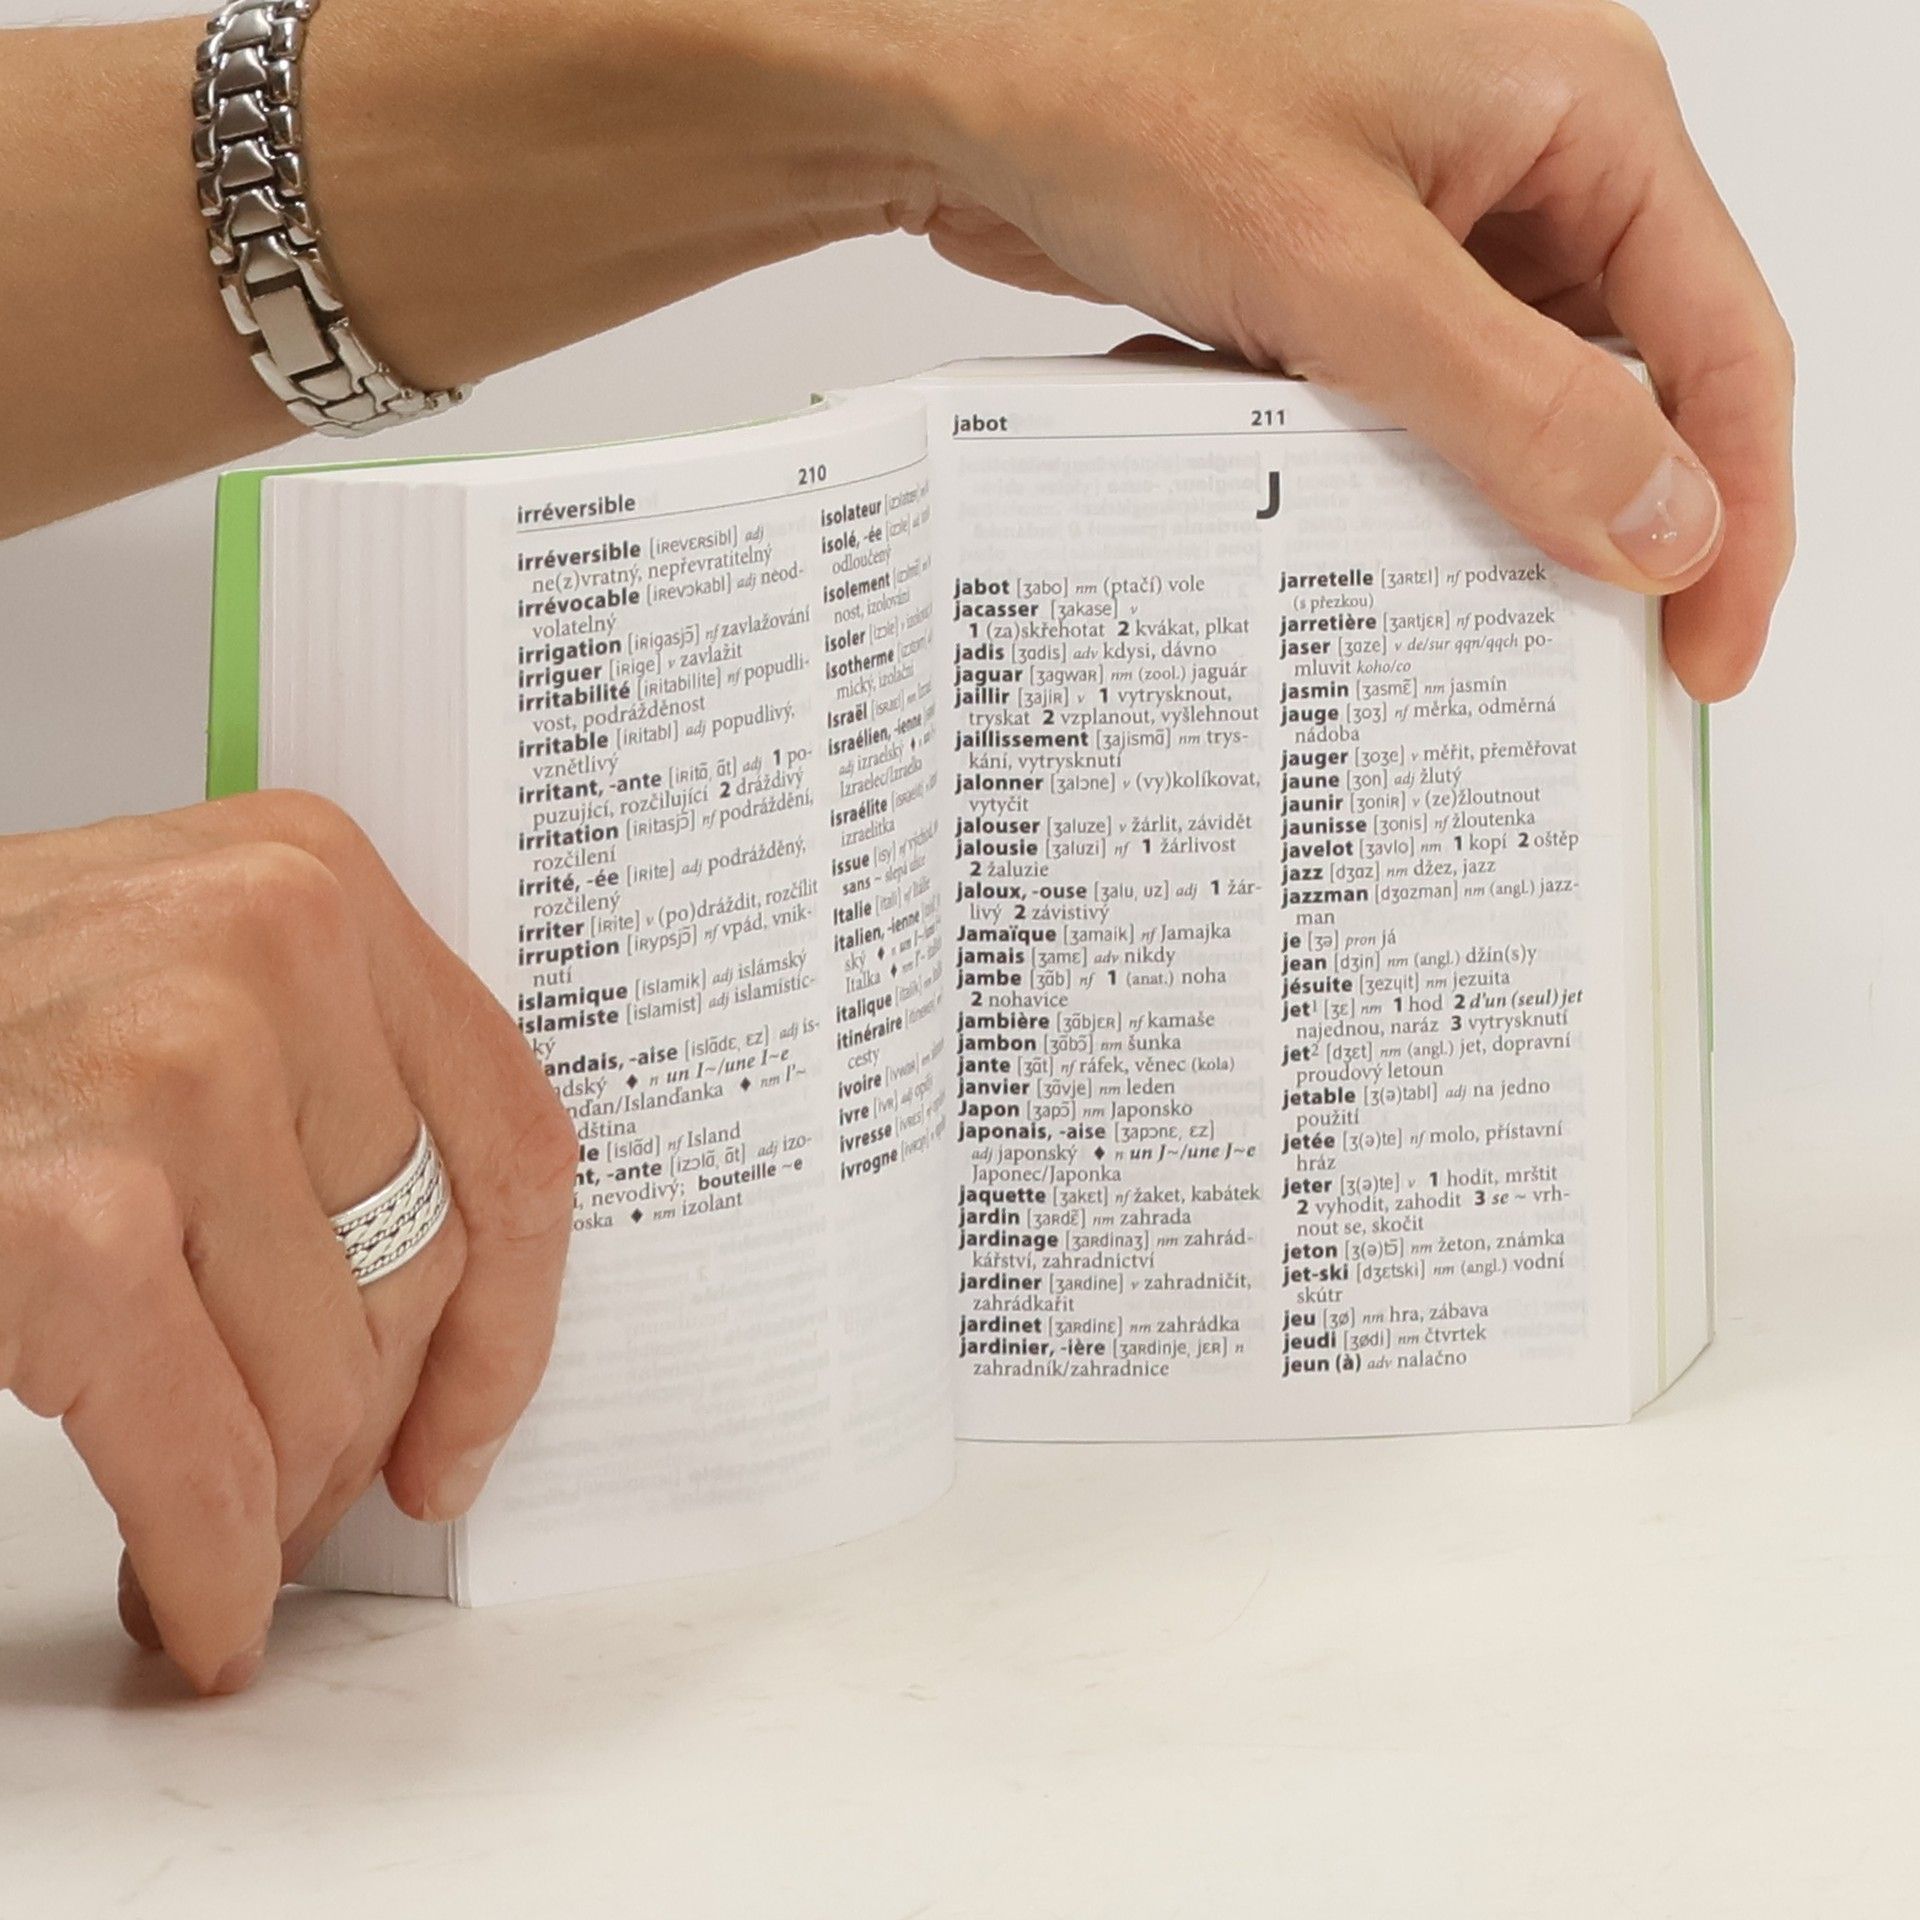 210
irréversible
irréversible [iʀevɛʀsibl] adj
ne(z)vratný, nepřevratitelný
irrévocable [iʀevɔkabl] adj neod-
volatelný
irrigation [iʀigasjɔ̃] nf zavlažování
irriguer [iʀige] v zavlažit
irritabilité [iʀitabilite] nf popudli-
vost, podrážděnost
irritable [iʀitabl] adj popudlivý,
vznětlivý
irritant, -ante [iʀitɑ̃, ɑ̃t] adj 1 po-
puzující, rozčilující 2 dráždivý
irritation [iʀitasjɔ̃] nf podráždění,
rozčilení
irrité, -ée [iʀite] adj podrážděný,
rozčilený
irriter [iʀite] v (po)dráždit, rozčílit
irruption [iʀypsjɔ̃] nf vpád, vnik-
nutí
islamique [islamik] adj islámský
islamiste [islamist] adj islamistic-
ký
andais, -aise [islɑ̃dɛ, ɛz] adj is-
dský ♦ n un I~/une I~e
nďan/Islanďanka ♦ nm l'~
dština
le [islɑ̃d] nf Island
nt, -ante [izɔlɑ̃, ɑ̃t] adj izo-
í, nevodivý; bouteille ~e
oska ♦ nm izolant
isolateur
isolé, -ée
odloučený
isolement
nost, izolování
isoler
isotherme
mický, izolační
Israël
israélien, -ienne
adj izraelský ♦
Izraelec/Izraelka
israélite
izraelitka
issue [isy] nf
sans ~ slepá ulice
Italie [itali] nf Itálie
italien, -ienne
ský ♦
Italka ♦
italique
itinéraire
cesty
ivoire
ivre
ivresse
ivrogne
jabot 211
J
jabot [ʒabo] nm (ptačí) vole
jacasser [ʒakase] v
1 (za)skřehotat 2 kvákat, plkat
jadis [ʒɑdis] adv kdysi, dávno
jaguar [ʒagwaʀ] nm (zool.) jaguár
jaillir [ʒajiʀ] v 1 vytrysknout,
tryskat 2 vzplanout, vyšlehnout
jaillissement [ʒajismɑ̃] nm trys-
kání, vytrysknutí
jalonner [ʒalɔne] v (vy)kolíkovat,
vytyčit
jalouser [ʒaluze] v žárlit, závidět
jalousie [ʒaluzi] nf 1 žárlivost
2 žaluzie
jaloux, -ouse [ʒalu, uz] adj 1 žár-
livý 2 závistivý
Jamaïque [ʒamaik] nf Jamajka
jamais [ʒamɛ] adv nikdy
jambe [ʒɑ̃b] nf 1 (anat.) noha
2 nohavice
jambière [ʒɑ̃bjɛʀ] nf kamaše
jambon [ʒɑ̃bɔ̃] nm šunka
jante [ʒɑ̃t] nf ráfek, věnec (kola)
janvier [ʒɑ̃vje] nm leden
Japon [ʒapɔ̃] nm Japonsko
japonais, -aise [ʒapɔnɛ, ɛz]
adj japonský ♦ n un J~/une J~e
Japonec/Japonka
jaquette [ʒakɛt] nf žaket, kabátek
jardin [ʒaʀdɛ̃] nm zahrada
jardinage [ʒaʀdinaʒ] nm zahrád-
kářství, zahradnictví
jardiner [ʒaʀdine] v zahradničit,
zahrádkařit
jardinet [ʒaʀdinɛ] nm zahrádka
jardinier, -ière [ʒaʀdinje, jɛʀ] n
zahradník/zahradnice
jarretelle [ʒaʀtɛl] nf podvazek
(s přezkou)
jarretière [ʒaʀtjɛʀ] nf podvazek
jaser [ʒɑze] v de/sur qqn/qqch po-
mluvit koho/co
jasmin [ʒasmɛ̃] nm jasmín
jauge [ʒoʒ] nf měrka, odměrná
nádoba
jauger [ʒoʒe] v měřit, přeměřovat
jaune [ʒon] adj žlutý
jaunir [ʒoniʀ] v (ze)žloutnout
jaunisse [ʒonis] nf žloutenka
javelot [ʒavlo] nm 1 kopí 2 oštěp
jazz [dʒɑz] nm džez, jazz
jazzman [dʒɑzman] nm (angl.) jazz-
man
je [ʒə] pron já
jean [dʒin] nm (angl.) džín(s)y
jésuite [ʒezɥit] nm jezuita
jet¹ [ʒɛ] nm 1 hod 2 d'un (seul) jet
najednou, naráz 3 vytrysknutí
jet² [dʒɛt] nm (angl.) jet, dopravní
proudový letoun
jetable [ʒ(ə)tabl] adj na jedno
použití
jetée [ʒ(ə)te] nf molo, přístavní
hráz
jeter [ʒ(ə)te] v 1 hodit, mrštit
2 vyhodit, zahodit 3 se ~ vrh-
nout se, skočit
jeton [ʒ(ə)tɔ̃] nm žeton, známka
jet-ski [dʒɛtski] nm (angl.) vodní
skútr
jeu [ʒø] nm hra, zábava
jeudi [ʒødi] nm čtvrtek
jeun (à) adv nalačno